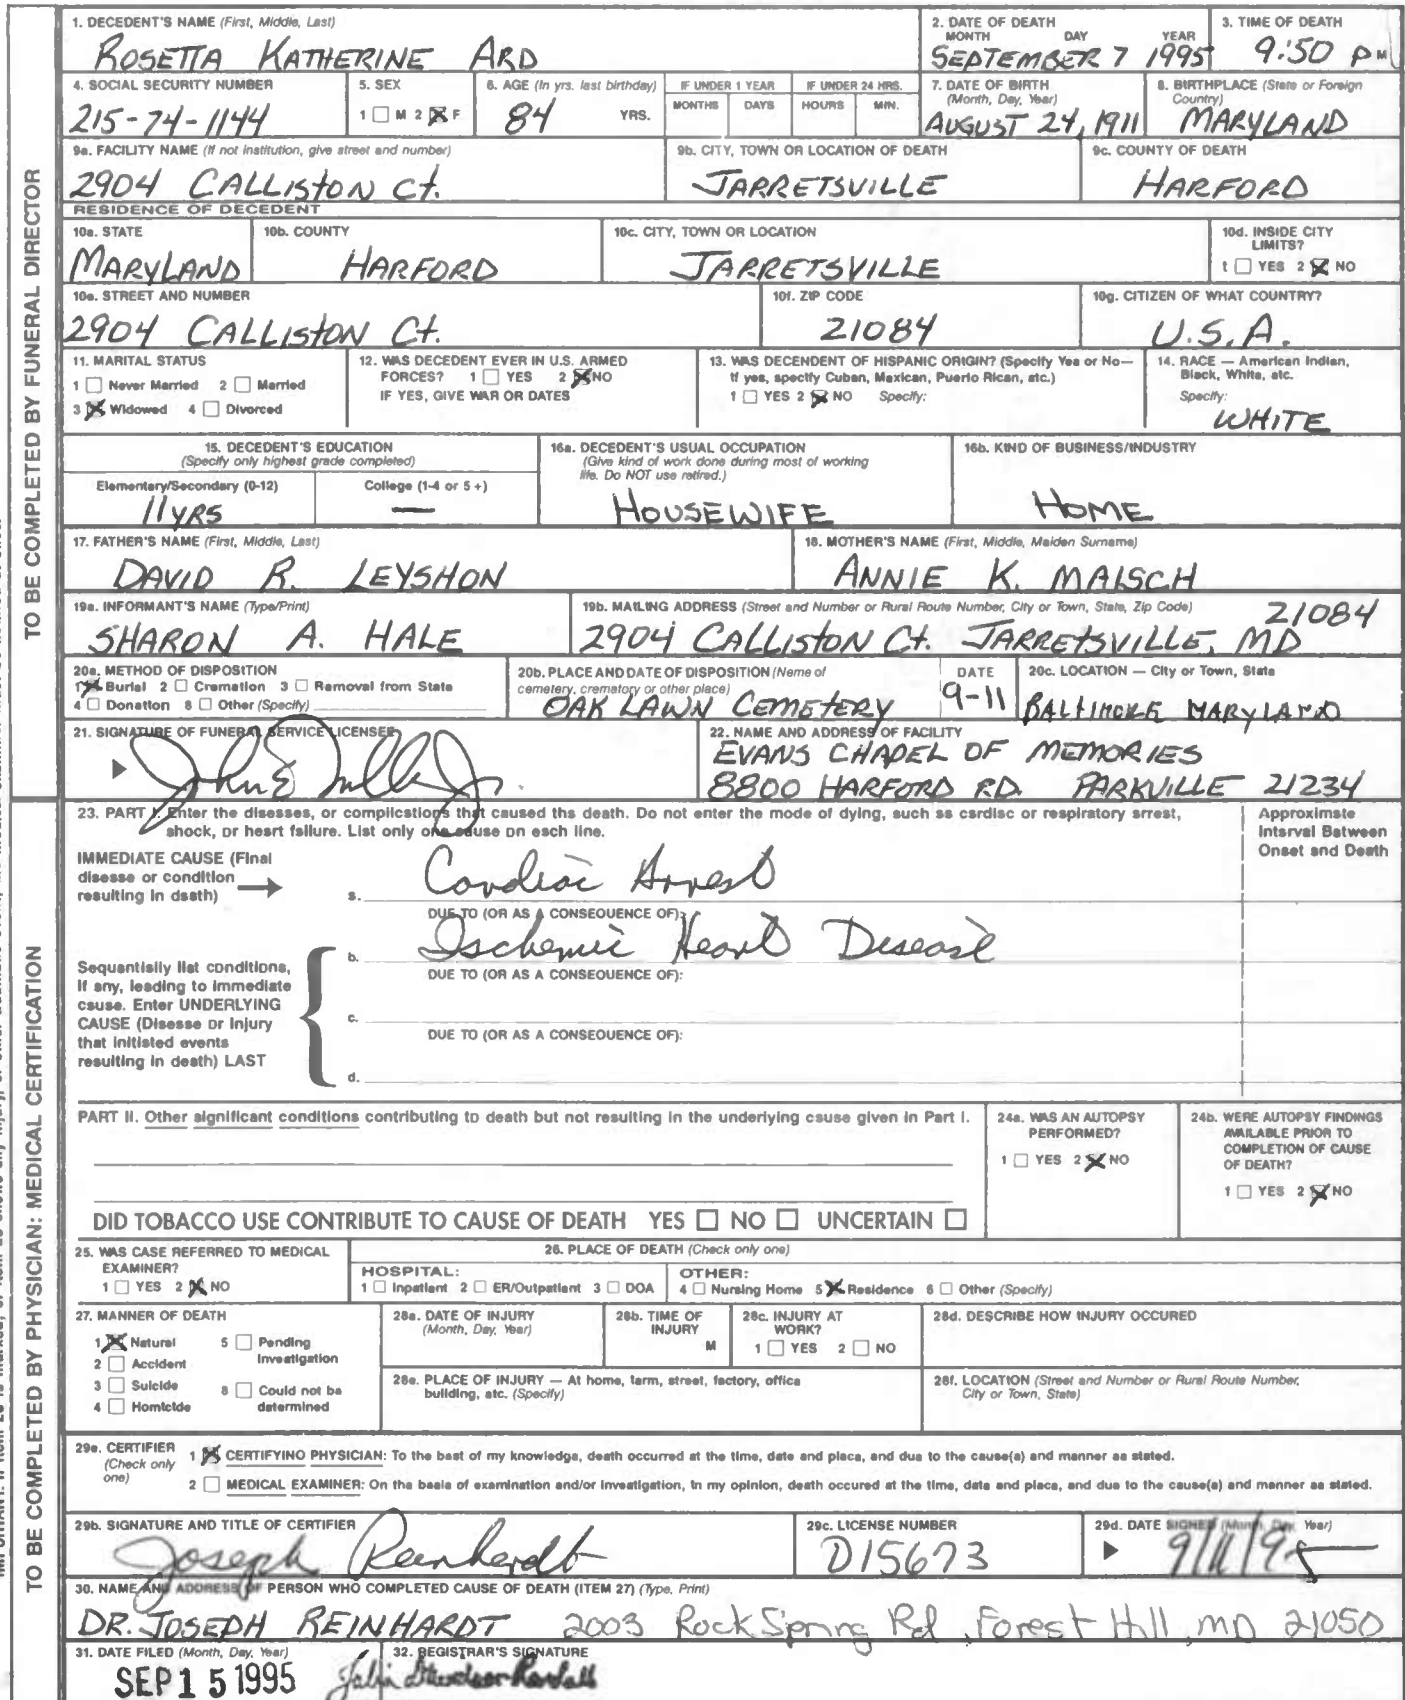 1. DECEDENT'S NAME (First, Middle, Last)
ROSETTA KATHERINE ARD
2. DATE OF DEATH
MONTH DAY YEAR
SEPTEMBER 7 1995
3. TIME OF DEATH
9:50 PM
4. SOCIAL SECURITY NUMBER
215-74-1144
5. SEX
1 ☐ M 2 ☒ F
6. AGE (In yrs. last birthday)
84 YRS.
IF UNDER 1 YEAR
MONTHS DAYS
IF UNDER 24 HRS.
HOURS MIN.
7. DATE OF BIRTH
(Month, Day, Year)
AUGUST 24, 1911
8. BIRTHPLACE (State or Foreign
Country)
MARYLAND
9a. FACILITY NAME (If not institution, give street and number)
2904 CALLISTON Ct.
9b. CITY, TOWN OR LOCATION OF DEATH
JARRETSVILLE
9c. COUNTY OF DEATH
HARFORD
RESIDENCE OF DECEDENT
10a. STATE
MARYLAND
10b. COUNTY
HARFORD
10c. CITY, TOWN OR LOCATION
JARRETSVILLE
10d. INSIDE CITY
LIMITS?
1 ☐ YES 2 ☒ NO
10e. STREET AND NUMBER
2904 CALLISTON Ct.
10f. ZIP CODE
21084
10g. CITIZEN OF WHAT COUNTRY?
U.S.A.
11. MARITAL STATUS
1 ☐ Never Married 2 ☐ Married
3 ☒ Widowed 4 ☐ Divorced
12. WAS DECEDENT EVER IN U.S. ARMED
FORCES? 1 ☐ YES 2 ☒ NO
IF YES, GIVE WAR OR DATES
13. WAS DECENDENT OF HISPANIC ORIGIN? (Specify Yes or No—
If yes, specify Cuban, Mexican, Puerto Rican, etc.)
1 ☐ YES 2 ☒ NO Specify:
14. RACE — American Indian,
Black, White, etc.
Specify:
WHITE
15. DECEDENT'S EDUCATION
(Specify only highest grade completed)
Elementary/Secondary (0-12)
11 YRS
College (1-4 or 5+)
—
16a. DECEDENT'S USUAL OCCUPATION
(Give kind of work done during most of working
life. Do NOT use retired.)
HOUSEWIFE
16b. KIND OF BUSINESS/INDUSTRY
HOME
17. FATHER'S NAME (First, Middle, Last)
DAVID R. LEYSHON
18. MOTHER'S NAME (First, Middle, Maiden Surname)
ANNIE K. MAISCH
19a. INFORMANT'S NAME (Type/Print)
SHARON A. HALE
19b. MAILING ADDRESS (Street and Number or Rural Route Number, City or Town, State, Zip Code)
21084
2904 CALLISTON Ct. JARRETSVILLE, MD
20a. METHOD OF DISPOSITION
1 ☒ Burial 2 ☐ Cremation 3 ☐ Removal from State
4 ☐ Donation 8 ☐ Other (Specify)
20b. PLACE AND DATE OF DISPOSITION (Name of
cemetery, crematory or other place)
OAK LAWN CEMETERY
DATE
9-11
20c. LOCATION — City or Town, State
BALTIMORE MARYLAND
21. SIGNATURE OF FUNERAL SERVICE LICENSEE
22. NAME AND ADDRESS OF FACILITY
EVANS CHAPEL OF MEMORIES
8800 HARFORD RD. PARKVILLE 21234
23. PART I. Enter the diseases, or complications that caused the death. Do not enter the mode of dying, such as cardiac or respiratory arrest,
shock, or heart failure. List only one cause on each line.
Approximate
Interval Between
Onset and Death
IMMEDIATE CAUSE (Final
disease or condition
resulting in death)
a. Cardiac Arrest
DUE TO (OR AS A CONSEQUENCE OF):
b. Ischemic Heart Disease
DUE TO (OR AS A CONSEQUENCE OF):
Sequentially list conditions,
If any, leading to immediate
cause. Enter UNDERLYING
CAUSE (Disease or Injury
that initiated events
resulting in death) LAST
c.
DUE TO (OR AS A CONSEQUENCE OF):
d.
PART II. Other significant conditions contributing to death but not resulting in the underlying cause given in Part I.
24a. WAS AN AUTOPSY
PERFORMED?
1 ☐ YES 2 ☒ NO
24b. WERE AUTOPSY FINDINGS
AVAILABLE PRIOR TO
COMPLETION OF CAUSE
OF DEATH?
1 ☐ YES 2 ☒ NO
DID TOBACCO USE CONTRIBUTE TO CAUSE OF DEATH YES ☐ NO ☐ UNCERTAIN ☐
25. WAS CASE REFERRED TO MEDICAL
EXAMINER?
1 ☐ YES 2 ☒ NO
26. PLACE OF DEATH (Check only one)
HOSPITAL:
1 ☐ Inpatient 2 ☐ ER/Outpatient 3 ☐ DOA
OTHER:
4 ☐ Nursing Home 5 ☒ Residence 6 ☐ Other (Specify)
27. MANNER OF DEATH
1 ☒ Natural 5 ☐ Pending
Investigation
2 ☐ Accident
3 ☐ Suicide 8 ☐ Could not be
determined
4 ☐ Homicide
28a. DATE OF INJURY
(Month, Day, Year)
28b. TIME OF
INJURY
M
28c. INJURY AT
WORK?
1 ☐ YES 2 ☐ NO
28d. DESCRIBE HOW INJURY OCCURED
28e. PLACE OF INJURY — At home, farm, street, factory, office
building, etc. (Specify)
28f. LOCATION (Street and Number or Rural Route Number,
City or Town, State)
29a. CERTIFIER
(Check only
one)
1 ☒ CERTIFYING PHYSICIAN: To the best of my knowledge, death occurred at the time, date and place, and due to the cause(s) and manner as stated.
2 ☐ MEDICAL EXAMINER: On the basis of examination and/or investigation, in my opinion, death occured at the time, date and place, and due to the cause(s) and manner as stated.
29b. SIGNATURE AND TITLE OF CERTIFIER
Joseph Reinhardt
29c. LICENSE NUMBER
D15673
29d. DATE SIGNED (Month, Day, Year)
9/11/95
30. NAME AND ADDRESS OF PERSON WHO COMPLETED CAUSE OF DEATH (ITEM 27) (Type, Print)
DR. JOSEPH REINHARDT 2003 Rock Spring Rd, Forest Hill, MD 21050
31. DATE FILED (Month, Day, Year)
SEP 15 1995
32. REGISTRAR'S SIGNATURE
TO BE COMPLETED BY FUNERAL DIRECTOR
TO BE COMPLETED BY PHYSICIAN: MEDICAL CERTIFICATION